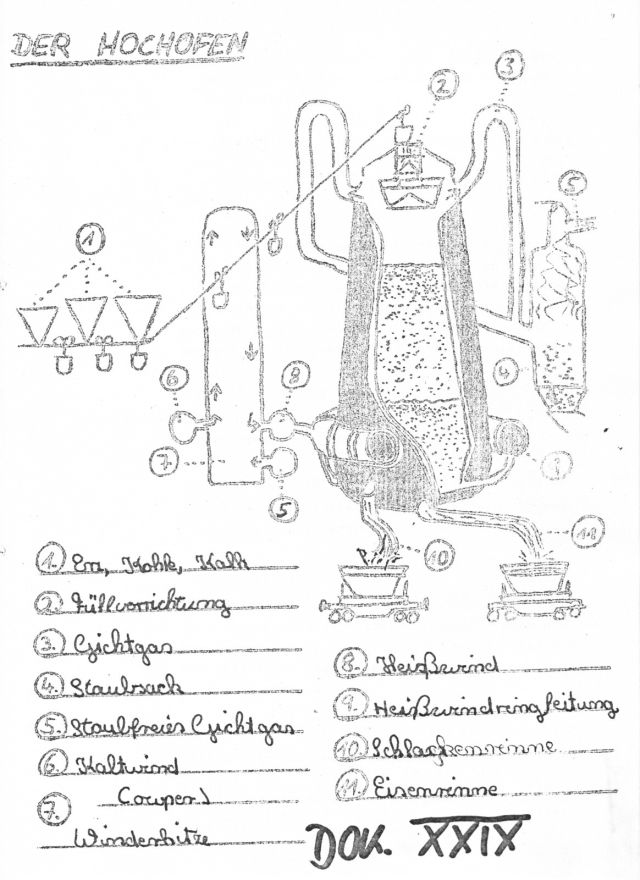 DER HOCHOFEN
1
2
3
5
4
6
7
8
5
10
11
1. Erz, Kohle, Kalk
2. Füllvorrichtung
3. Gichtgas
4. Staubsack
5. Staubfreies Gichtgas
6. Kaltwind
7. Cowper
Winderhitze
8. Heißwind
9. Heißwindringleitung
10. Schlackenrinne
11. Eisenrinne
DOK. XXIX